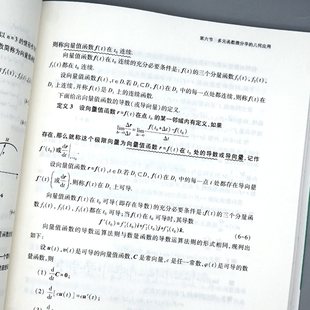 以 n=3 的情形为
数简称为向量值
第六节 多元函数微分学的几何应用
则称向量值函数 f(t) 在 t₀ 连续.
向量值函数 f(t) 在 t₀ 连续的充分必要条件是: f(t) 的三个分量函数 f₁(t),
f₂(t), f₃(t) 都在 t₀ 连续.
设向量值函数 f(t), t∈D. 若 D₁⊂D, f(t) 在 D₁ 中的每一点处都连续, 则称 f(t) 在
D₁ 上连续, 并称 f(t) 是 D₁ 上的连续函数.
下面给出向量值函数的导数(或导向量)的定义.
定义 3 设向量值函数 r=f(t) 在点 t₀ 的某一邻域内有定义, 如果
lim Δt→0 Δr/Δt = lim Δt→0 [f(t₀+Δt)-f(t₀)]/Δt
存在, 那么就称这个极限向量为向量值函数 r=f(t) 在 t₀ 处的导数或导向量, 记作
f′(t₀) 或 dr/dt|t=t₀.
设向量值函数 r=f(t), t∈D. 若 D₁⊂D, f(t) 在 D₁ 中的每一点 t 处都存在导向量
f′(t) 或 dr/dt, 则称 f(t) 在 D₁ 上可导.
向量值函数 f(t) 在 t₀ 可导(即存在导数)的充分必要条件是: f(t) 的三个分量函
数 f₁(t), f₂(t), f₃(t) 都在 t₀ 可导; 当 f(t) 在 t₀ 可导时, 其导数
f′(t₀)=f₁′(t₀)i+f₂′(t₀)j+f₃′(t₀)k. (6-6)
向量值函数的导数运算法则与数量函数的导数运算法则的形式相同, 现列出
如下:
设 u(t), v(t) 是可导的向量值函数, C 是常向量, c 是任一常数, φ(t) 是可导的数
量函数, 则
(1) d/dt C=0;
(2) d/dt [cu(t)]=cu′(t);